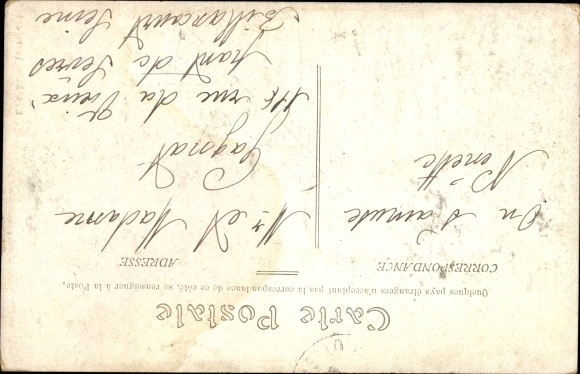 Carte Postale
Quelques pays étrangers n'acceptant pas la correspondance de ce côté, se renseigner à la Poste.
CORRESPONDANCE
ADRESSE
On s'amuse
Nénette
Mr et Madame
Gagnat
rue du Vieux
Pont de Sèvres
Billancourt Seine